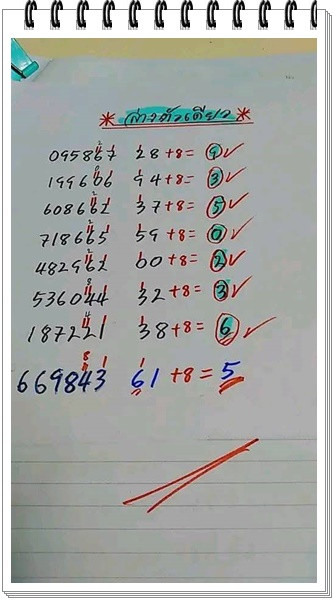 * ล่างตัวเดียว *
095867 28 +8 = 9 ✓
199606 94 +8 = 3 ✓
608662 37 +8 = 5 ✓
718665 59 +8 = 0 ✓
482962 00 +8 = 2 ✓
536044 32 +8 = 3 ✓
187221 38 +8 = 6 ✓
669843 61 +8 = 5